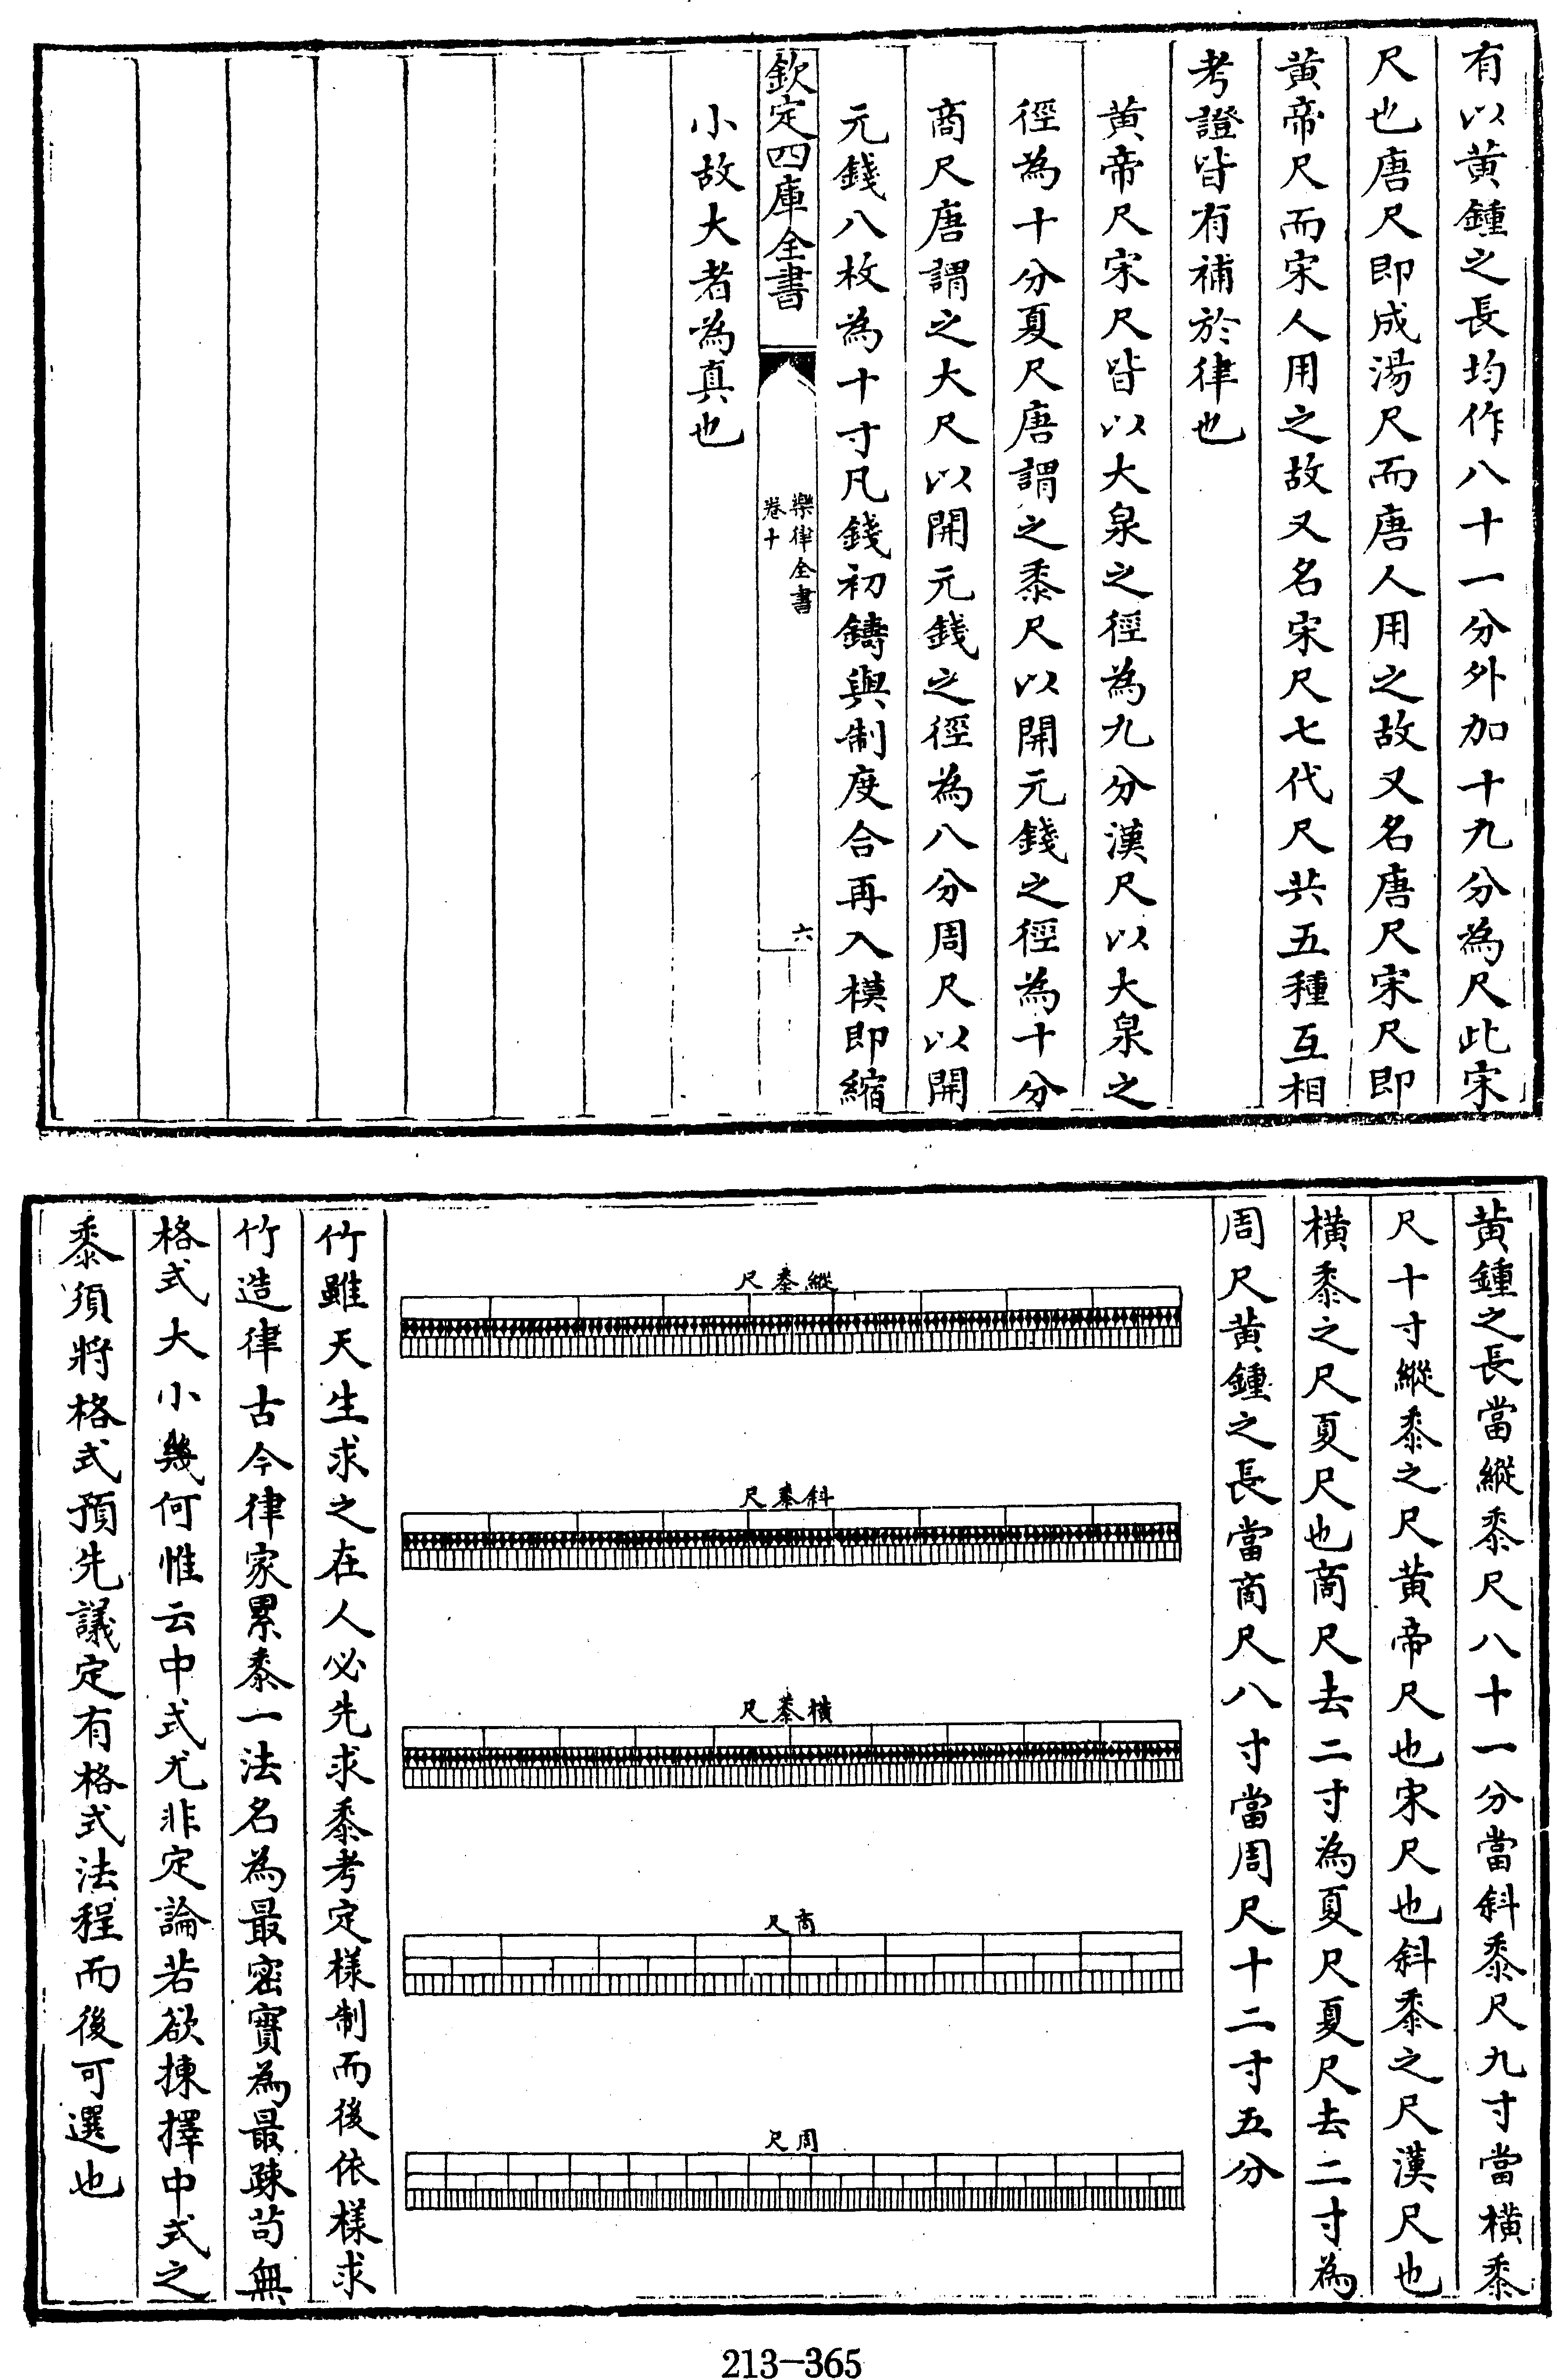 有以黃鍾之長均作八十一分外加十九分為尺此宋
尺也唐尺即成湯尺而唐人用之故又名唐尺宋尺即
黃帝尺而宋人用之故又名宋尺七代尺共五種互相
考證皆有補於律也
黃帝尺宋尺皆以大泉之徑為九分漢尺以大泉之
徑為十分夏尺唐謂之黍尺以開元錢之徑為十分
商尺唐謂之大尺以開元錢之徑為八分周尺以開
元錢八枚為十寸凡錢初鑄與制度合再入模即縮
欽定四庫全書
樂律全書
卷十
六
小故大者為真也
黃鍾之長當縱黍尺八十一分當斜黍尺九寸當橫黍
尺十寸縱黍之尺黃帝尺也宋尺也斜黍之尺漢尺也
橫黍之尺夏尺也商尺去二寸為夏尺夏尺去二寸為
周尺黃鍾之長當商尺八寸當周尺十二寸五分
縱黍尺
斜黍尺
橫黍尺
商尺
周尺
竹雖天生求之在人必先求黍考定樣制而後依樣求
竹造律古今律家累黍一法名為最密實為最疎茍無
格式大小幾何惟云中式尤非定論若欲揀擇中式之
黍須將格式預先議定有格式法程而後可選也
213-365